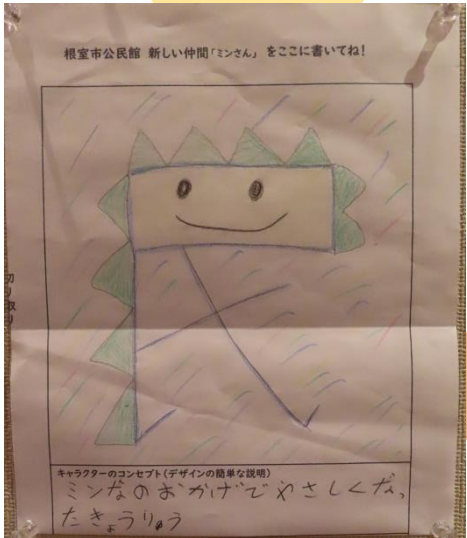 根室市公民館 新しい仲間「ミンさん」 をここに書いてね!
民
切り取り
キャラクターのコンセプト(デザインの簡単な説明)
ミンなのおかげでやさしくなっ
たきょうりゅう